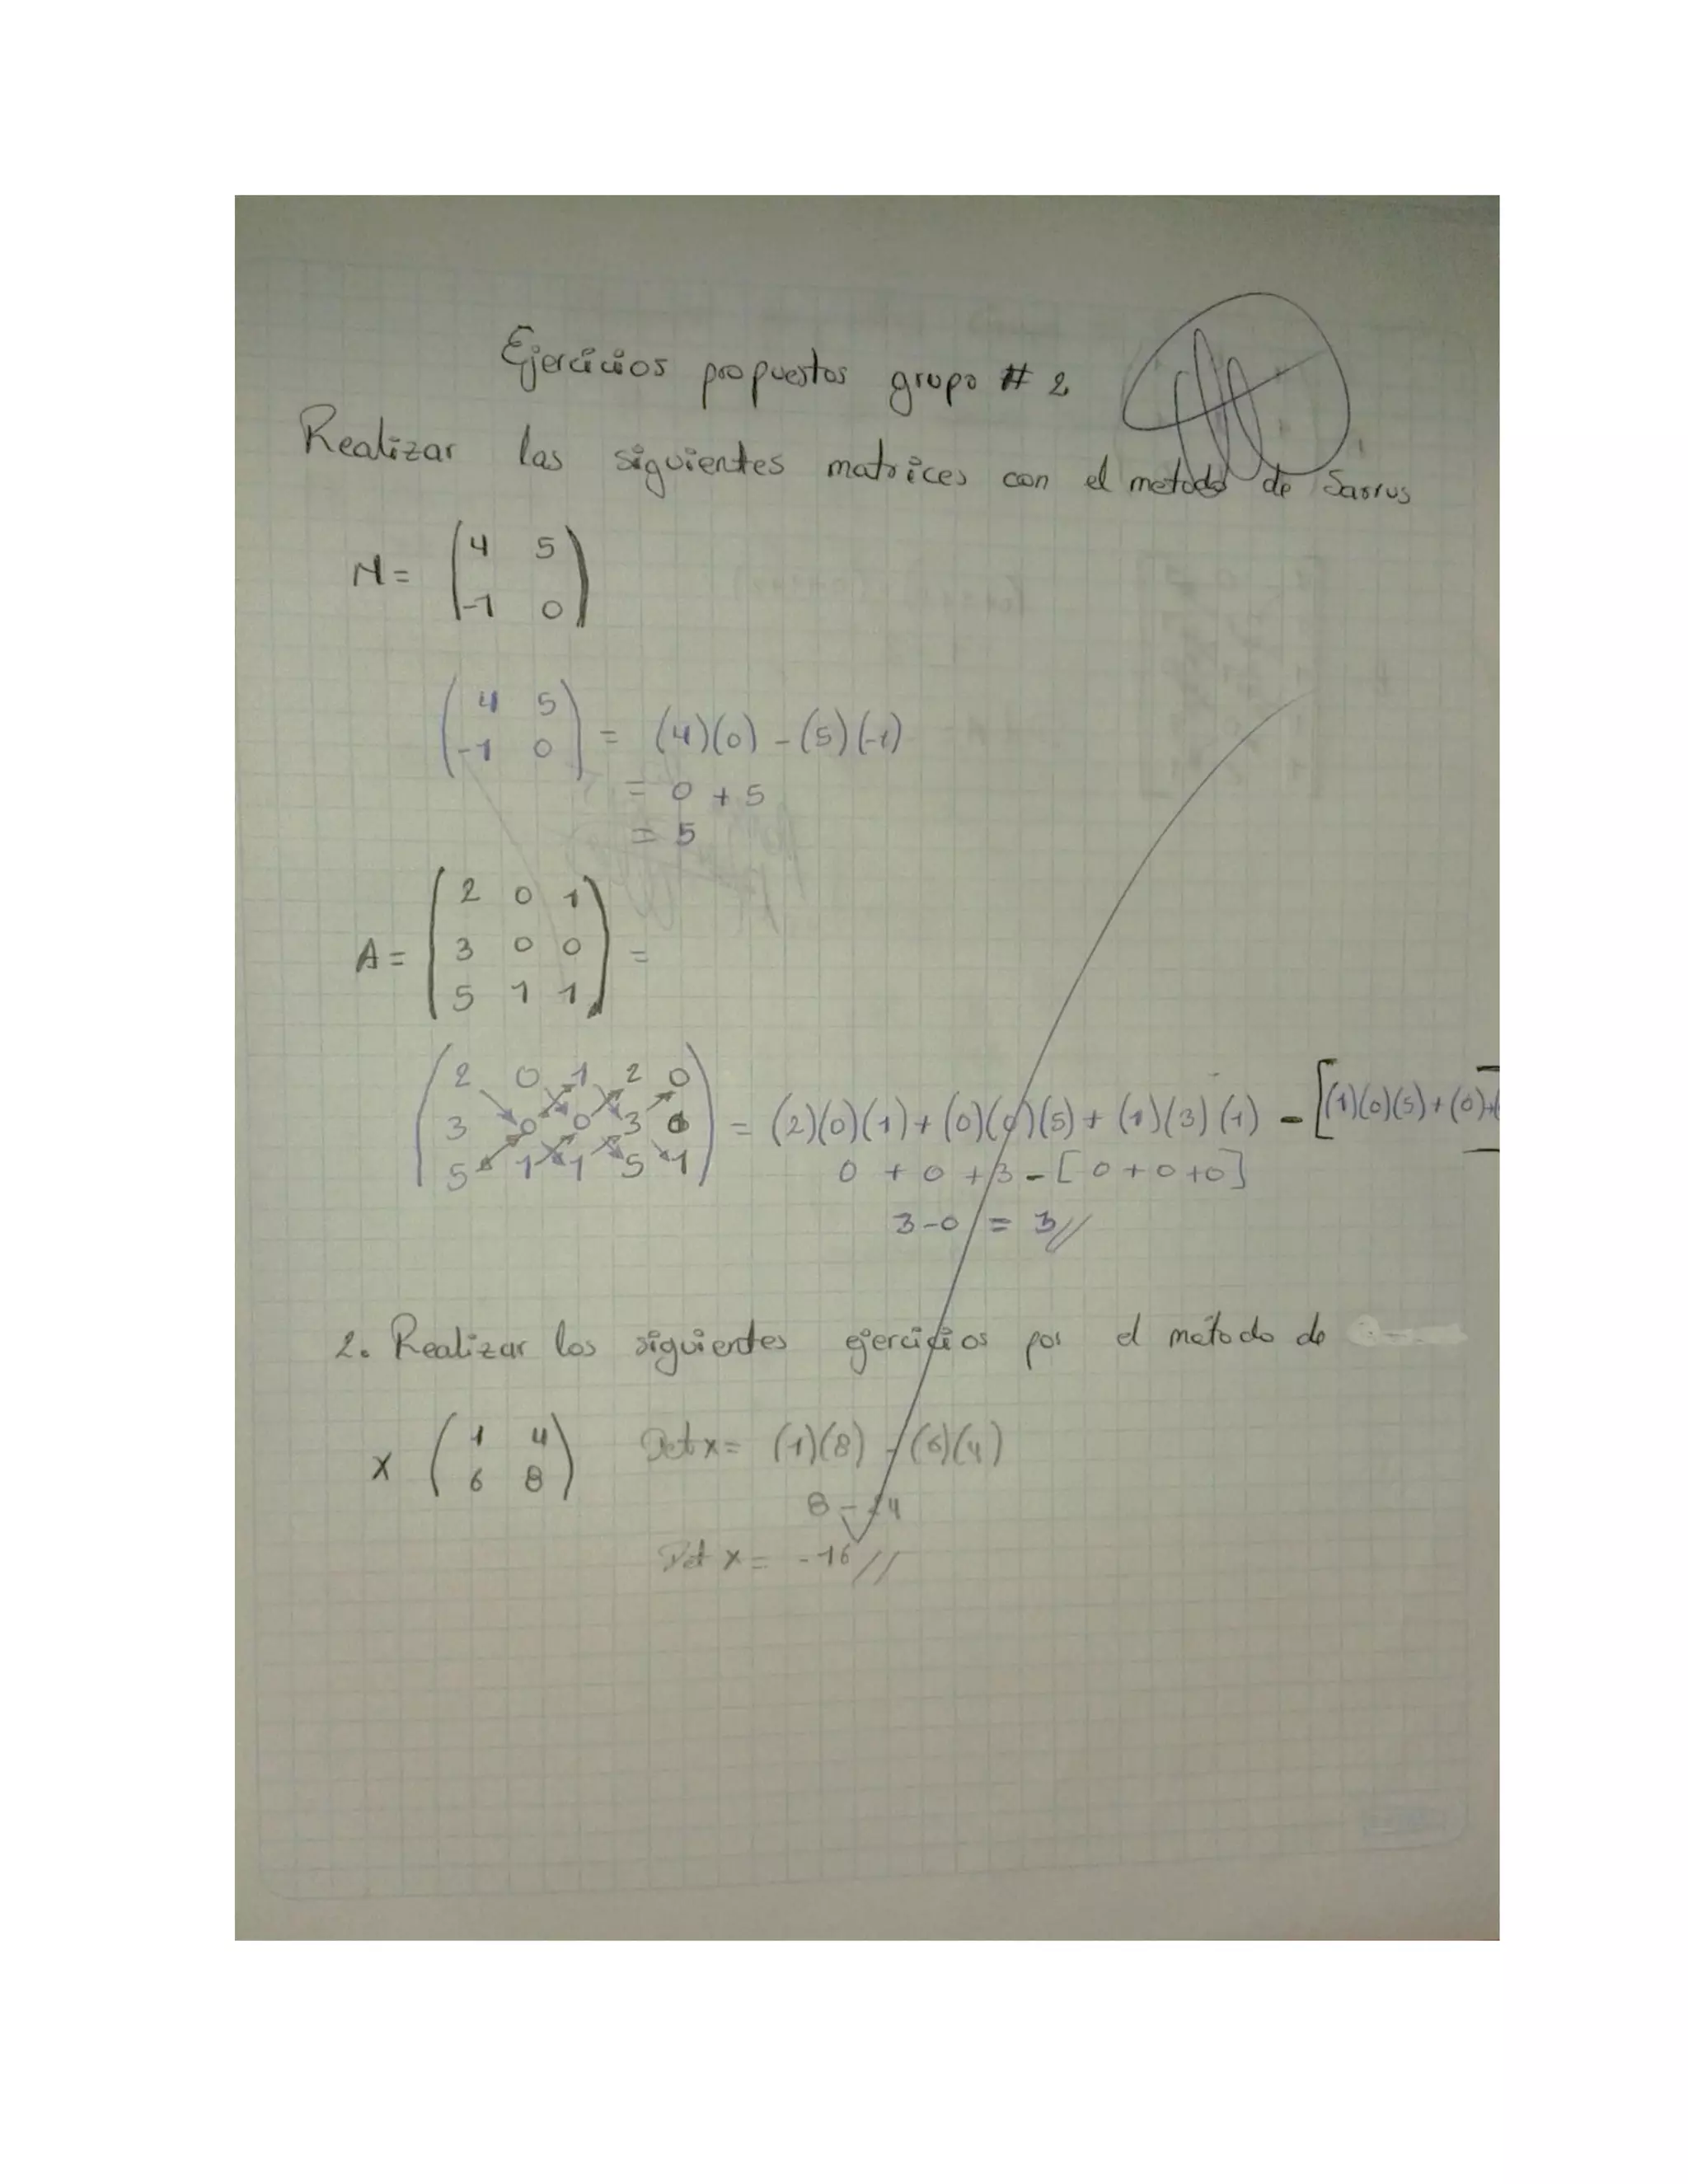 Ejercicios propuestos grupo # 2
Realizar las siguientes matrices con el metodo de Sarrus
M = ( 4 5
-1 0 )
( 4 5
-1 0 ) = (4)(0) - (5)(-1)
= 0 + 5
= 5
A = ( 2 0 1
3 0 0
5 1 1 ) =
( 2 0 1 2 0
3 0 0 3 0
5 1 1 5 1 ) = (2)(0)(1) + (0)(0)(5) + (1)(3)(1) - [(1)(0)(5) + (0)
0 + 0 + 3 - [0 + 0 + 0]
3 - 0 = 3//
2. Realizar los siguientes ejercicios por el método de
X ( 1 4
6 8 ) Det x = (1)(8) - (6)(4)
8 - 24
Det x = -16//